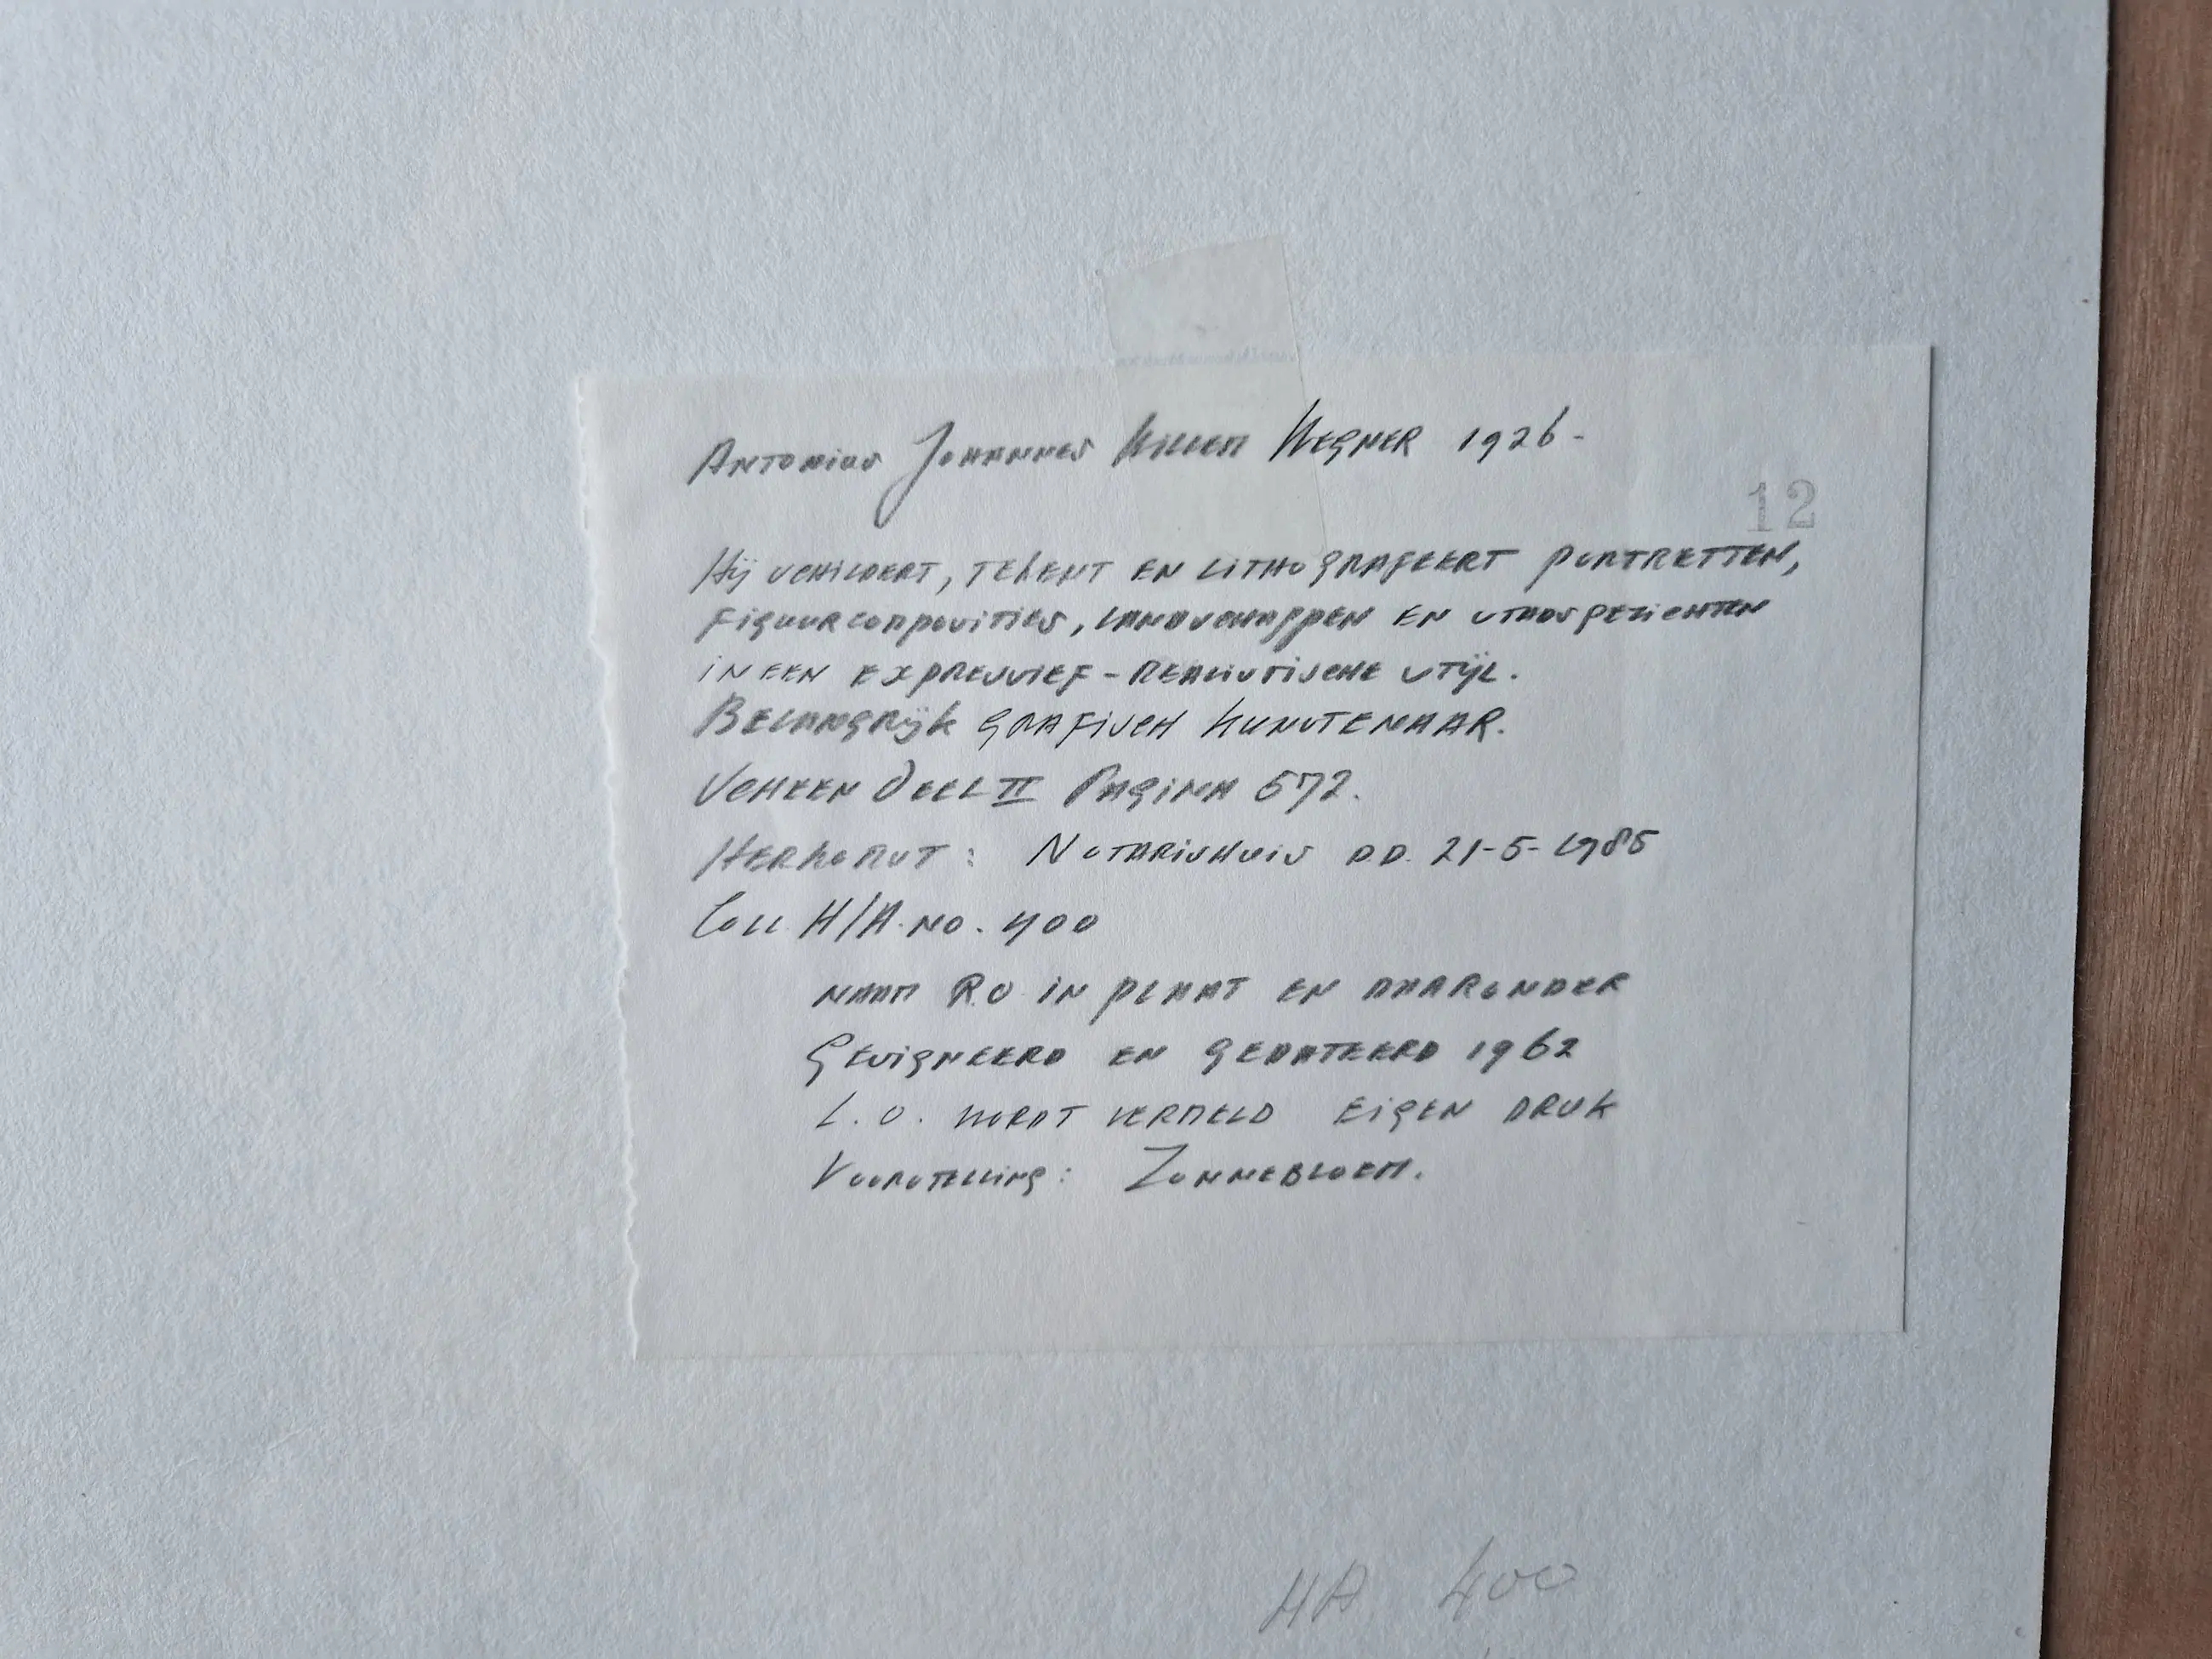 Antonius Johannes Willem Wegner 1926-
12
Hij schildert, tekent en lithografeert portretten,
figuurcomposities, landschappen en stadsgezichten
in een expressief-realistische stijl.
Belangrijk grafisch kunstenaar.
Scheen Deel II Pagina 572.
Herkomst: Notarishuis d.d. 21-5-1985
Coll H/A. no. 400
naam R.O in plaat en daaronder
Gesigneerd en gedateerd 1962
L.O. wordt vermeld eigen druk
Voorstelling: Zonnebloem.
HA 400